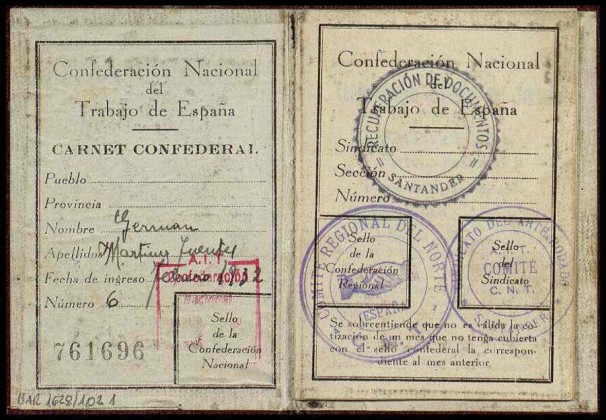 Confederación Nacional
del
Trabajo de España
CARNET CONFEDERAL
Pueblo
Provincia
Nombre German
Apellidos Martinez Fuentes
Fecha de ingreso febrero 1932
Número 6
A.I.T.
Confederación
Nacional
Sello
de la
Confederación
Nacional
761696
BAR 1628/102 1
Confederación Nacional
del
Trabajo de España
RECUPERACIÓN DE DOCUMENTOS
SANTANDER
Sindicato
Sección
Número
COMITÉ REGIONAL DEL NORTE
(ESPAÑA)
Sello
de la
Confederación
Regional
A.I.T.
COMITÉ
C.N.T.
Sello
del
Sindicato
Se sobreentiende que no es válida la co-
tización de un mes que no tenga cubierta
con el sello confederal la correspon-
diente al mes anterior